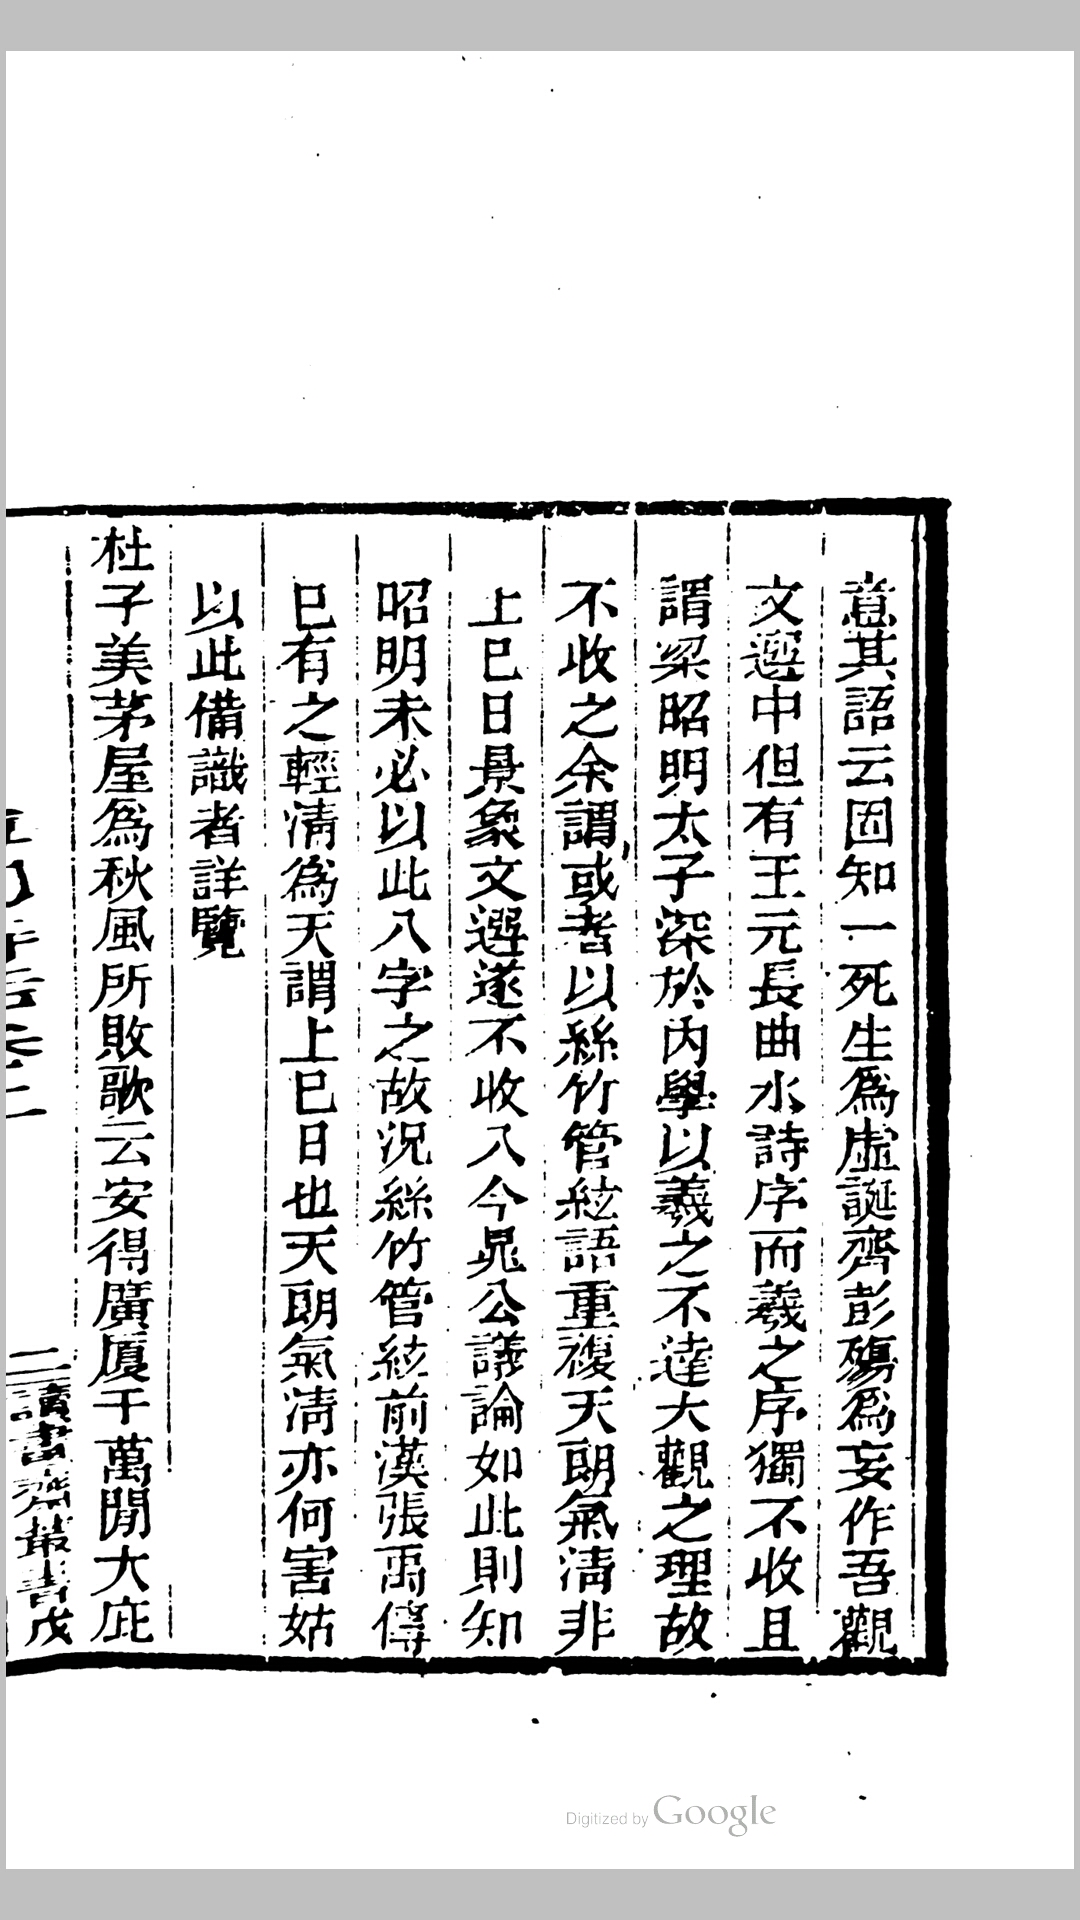 意其語云固知一死生爲虛誕齊彭殤爲妄作吾觀
文選中但有王元長曲水詩序而羲之序獨不收且
謂梁昭明太子深於內學以羲之不達大觀之理故
不收之余謂或者以絲竹管絃語重複天朗氣淸非
上巳日景象文選遂不收入今晁公議論如此則知
昭明未必以此八字之故況絲竹管絃前漢張禹傳
巳有之輕淸爲天謂上巳日也天朗氣淸亦何害姑
以此備識者詳覽
杜子美茅屋爲秋風所敗歌云安得廣厦千萬間大庇
二讀書齋叢書戊
Digitized by Google